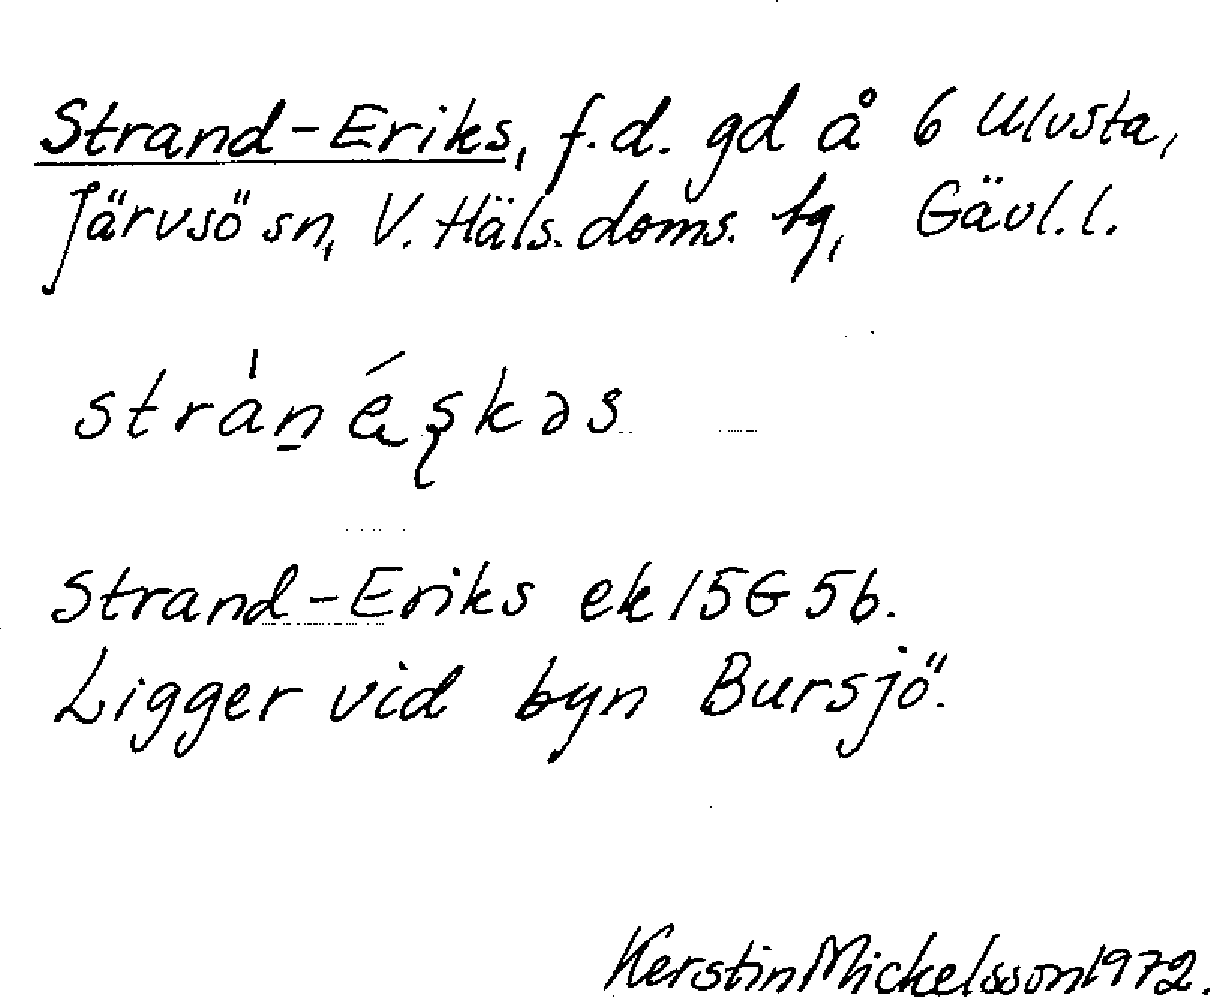 Strand-Eriks, f.d. gd å 6 Ulvsta,
Järvsö sn, V. Häls. doms. tg, Gävl. l.
Strand-Eriks ek 15G 5b.
Ligger vid byn Bursjö.
Kerstin Mickelsson 1972.